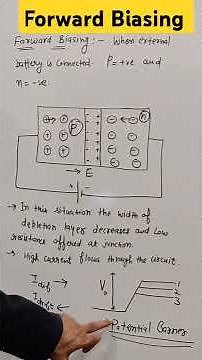 Forward Biasing
Forward Biasing :- When external
battery is connected. P=+ve and
n=-ve.
P
n
E
→ In this situation the width of
depletion layer decreases and Low
resistans offered at junction.
→ High current flows through the circuit.
V₀
1
2
3
Idif →
Idrift ←
Potential Barrier